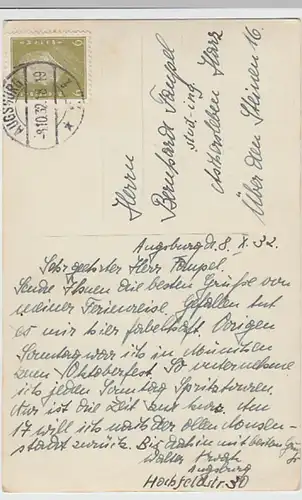 AUGSBURG
-8.10.32.
6
Herrn
Bernhardt Tampel
stud-ing
Aschersleben Harz
Über den Steinen 16
Augsburg d. 8. X. 32.
Sehr geehrter Herr Tampel.
Sende Ihnen die besten Grüße von
meiner Ferienreise. Gefallen tut
es mir hier fabelhaft. Vorigen
Sonntag war ich in München
zum Oktoberfest. So unternehme
ich jeden Sonntag Spritztouren.
Nur ist die Zeit zu kurz. Am
17 will ich nach der ollen
zurück. Bis dahin mit besten Grüß
Walter
Augsburg
Hochfeldstr 30